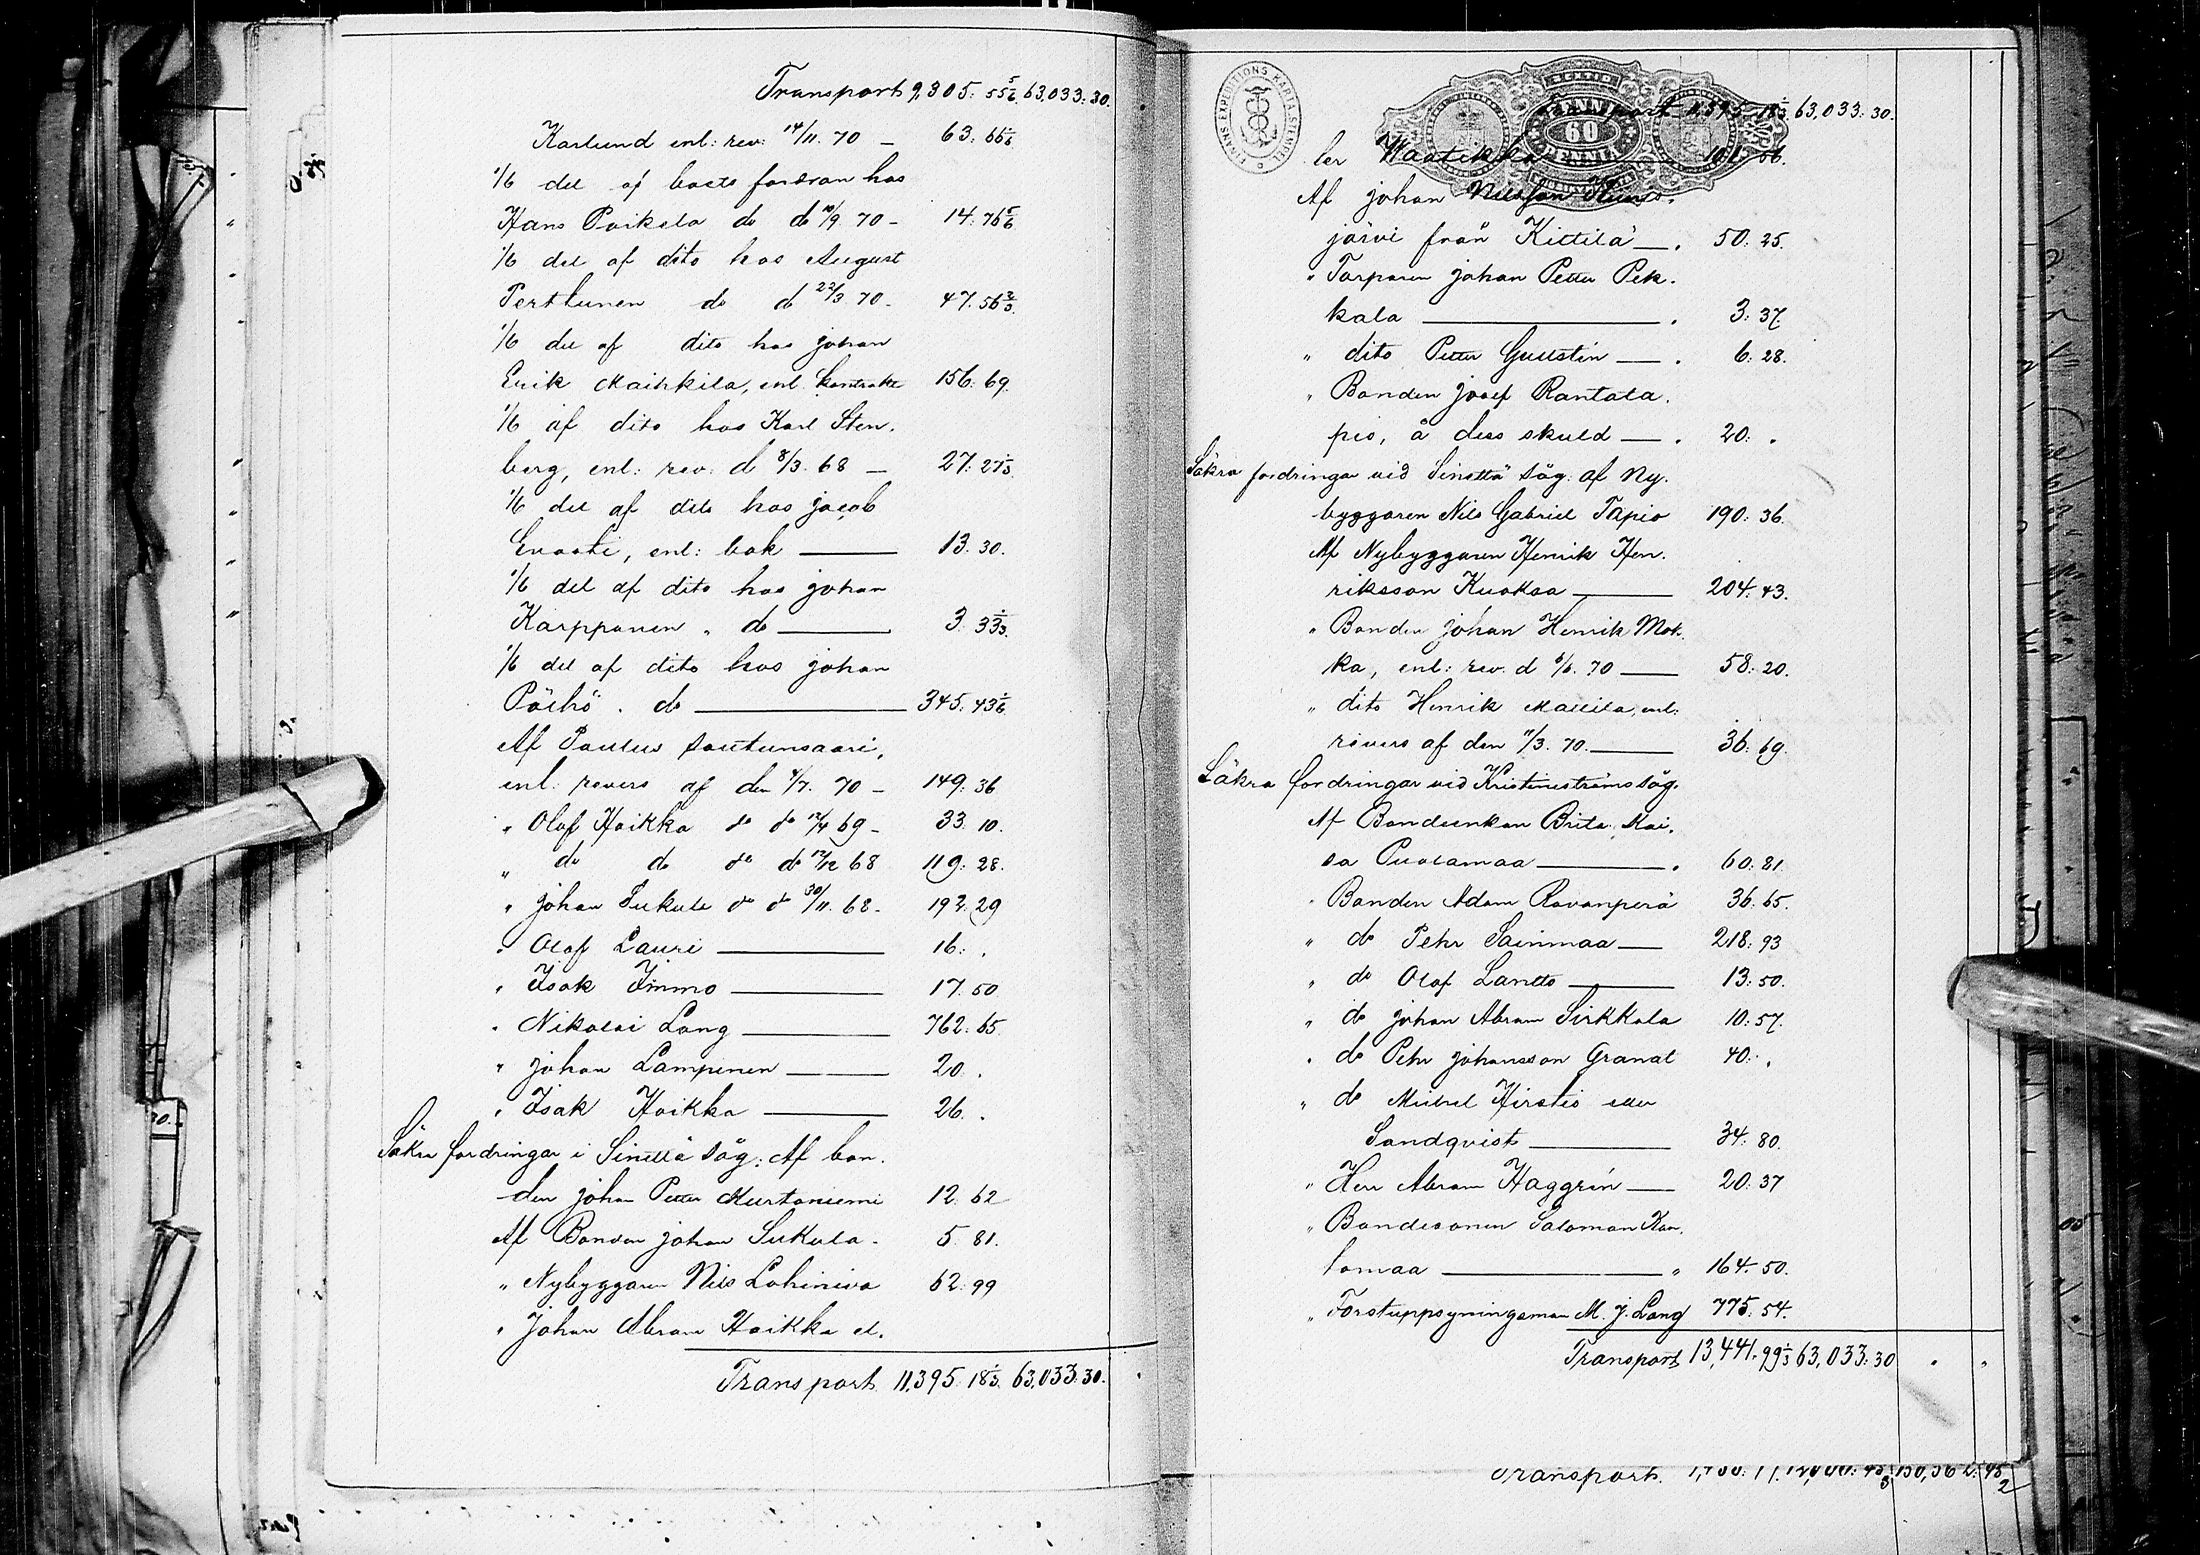 Transport 9,305: 55 5/6 63,033: 30.
Karlund enl: rev: 14/11. 70 — 63: 65 5/6
1/6 del af boets fordran hos
Hans Poikela do do 10/9 70 — 14: 76 5/6
1/6 del af dito hos August
Perttunen do d 22/3 70 — 47. 56 2/3
1/6 del af dito hos johan
Erik Maihkila, enl. kontrakt 156: 69.
1/6 af dito hos Karl Sten.
berg, enl: rev: d 8/3. 68 — 27: 27 1/3
1/6 del af dito hos jacob
Evasti, enl: bok — 13. 30.
1/6 del af dito hos johan
Karpponen „ do — 3. 33 1/3.
1/6 del af dito hos johan
Pöihö . do — 345: 43 1/6
Af Paulus Sautunsaari,
enl: revers af den 4/7. 70 — 149: 36
„ Olof Koikka do do 12/4 69 — 33. 10.
„ do do do do 12/12 68 119: 28.
„ johan Sukula do do 30/11. 68 — 192. 29
„ Olof Lauri — 16: .
„ Isak Immo — 17. 50
„ Nikolai Lang — 762: 65
„ johan Lampinen — 20. .
„ Isak Koikka — 26. .
Säkra fordringar i Sinettä såg: Af bon.
den johan Petter Murtoniemi 12. 62
Af Bonden johan Sukula — 5. 81.
„ Nybyggaren Nils Lohiniva 62: 99
„ Johan Abram Koikka el.
Transport 11,395. 18 1/3. 63,033: 30.
FINANS EXPEDITIONS KARTA STEMPEL
60
PENNIÄ
Transport 11,395 18 1/3 63,033: 30.
ler Waatikka 101. 56.
Af johan Nilsson Kuus.
järvi från Kittilä — . 50: 25.
„ Torparen johan Petter Pek.
kala — . 3: 37.
„ dito Petter Gustin — . 6: 28.
„ Bonden josef Rantala.
pio, å dess skuld — . 20: .
Säkra fordringar vid Sinettä såg: af Ny.
byggaren Nils Gabriel Tapio 190: 36.
Af Nybyggaren Henrik Hen.
riksson Kuoksa — 204: 43.
„ Bonden johan Henrik Mok.
ka, enl: rev. d 6/6. 70 — 58: 20.
„ dito Henrik Mattila, enl:
revers af den 11/3. 70. — 36: 69.
Säkra fordringar vid Kristineströms såg.
Af Bondeenkan Brita Kai.
sa Puolamaa — . 60: 81.
„ Bonden Adam Rovanperä 36: 65.
„ do Pehr Sainmaa — 218: 93
„ do Olof Lantto — 13: 50.
„ do johan Abram Sirkkala 10: 57.
„ do Pehr johansson Granat 40: .
„ do Mickel Hirstiö eller
Sandqvist — 34: 80.
„ Herr Abram Haggrén — 20: 37
„ Bondesonen Salomon Kau.
lomaa — „ 164. 50.
„ Forstuppsyningsman M. J. Lang 775: 54.
Transport 13,441. 99 1/3 63,033: 30
Transport.